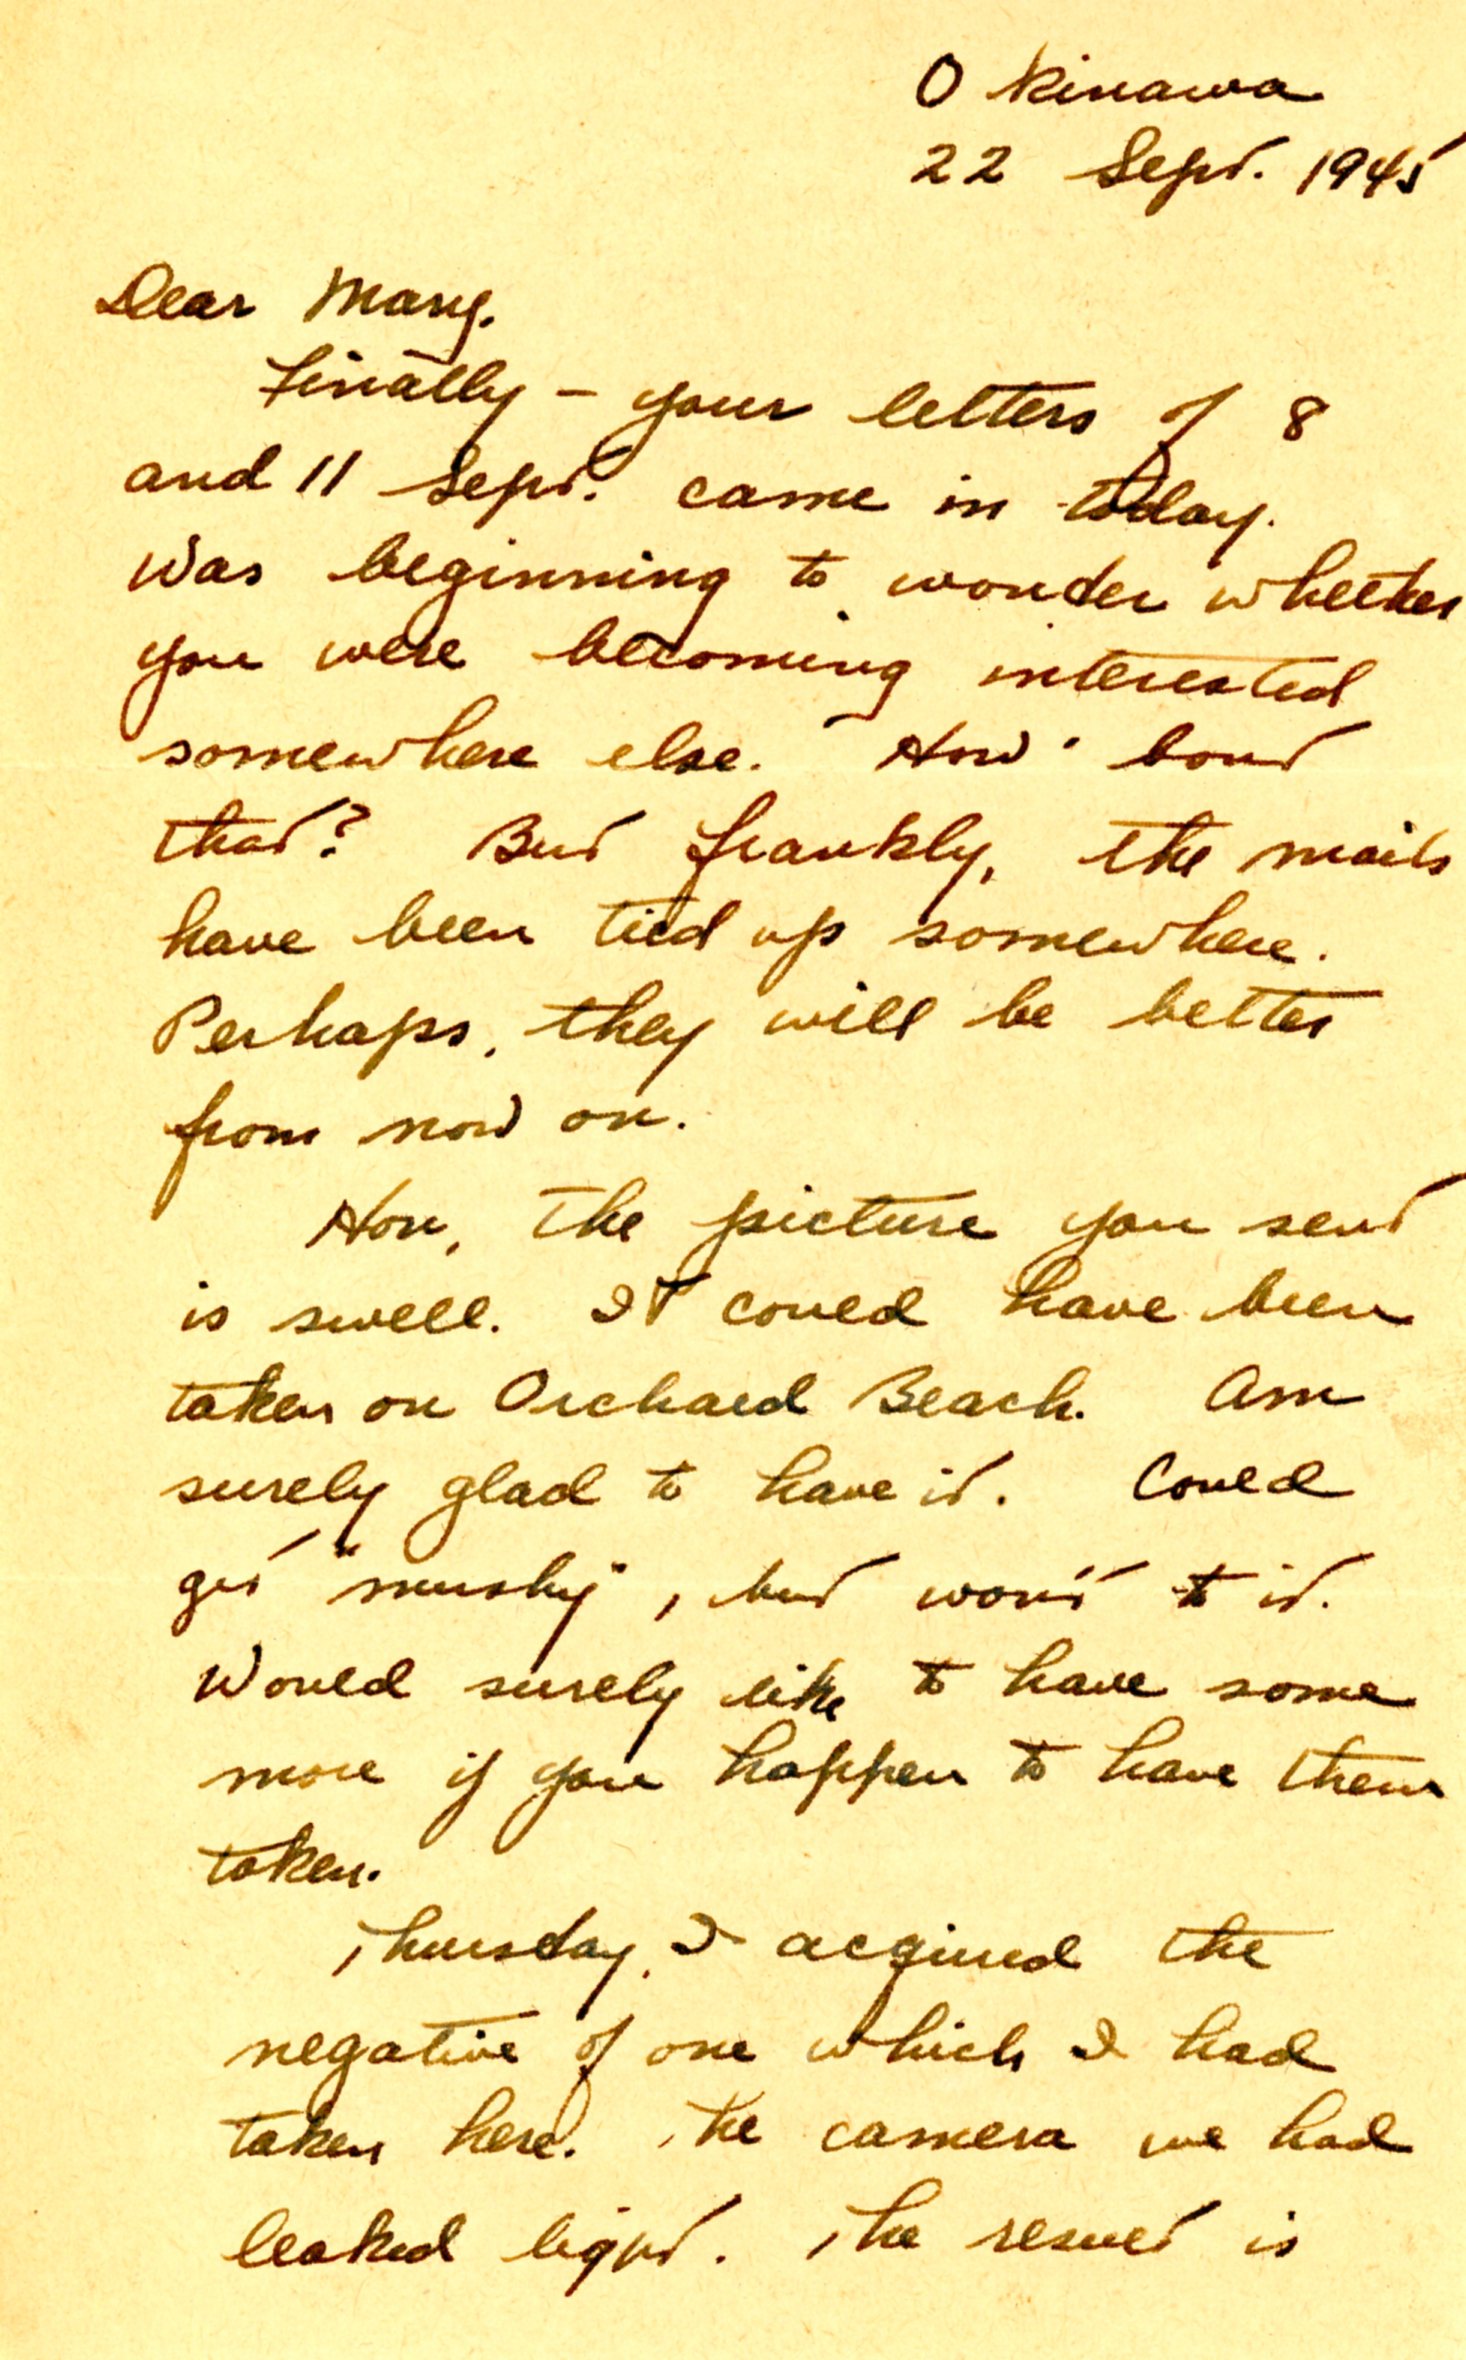 Okinawa
22 Sept. 1945
Dear Mary,
Finally – your letters of 8
and 11 Sept. came in today.
Was beginning to wonder whether
you were becoming interested
somewhere else. How 'bout
that? But frankly, the mails
have been tied up somewhere.
Perhaps, they will be better
from now on.
Hon, the picture you sent
is swell. It could have been
taken on Orchard Beach. Am
surely glad to have it. Could
get "mushy", but won't to it.
Would surely like to have some
more if you happen to have them
taken.
Thursday, I acquired the
negative of one which I had
taken here. The camera we had
leaked light. The result is